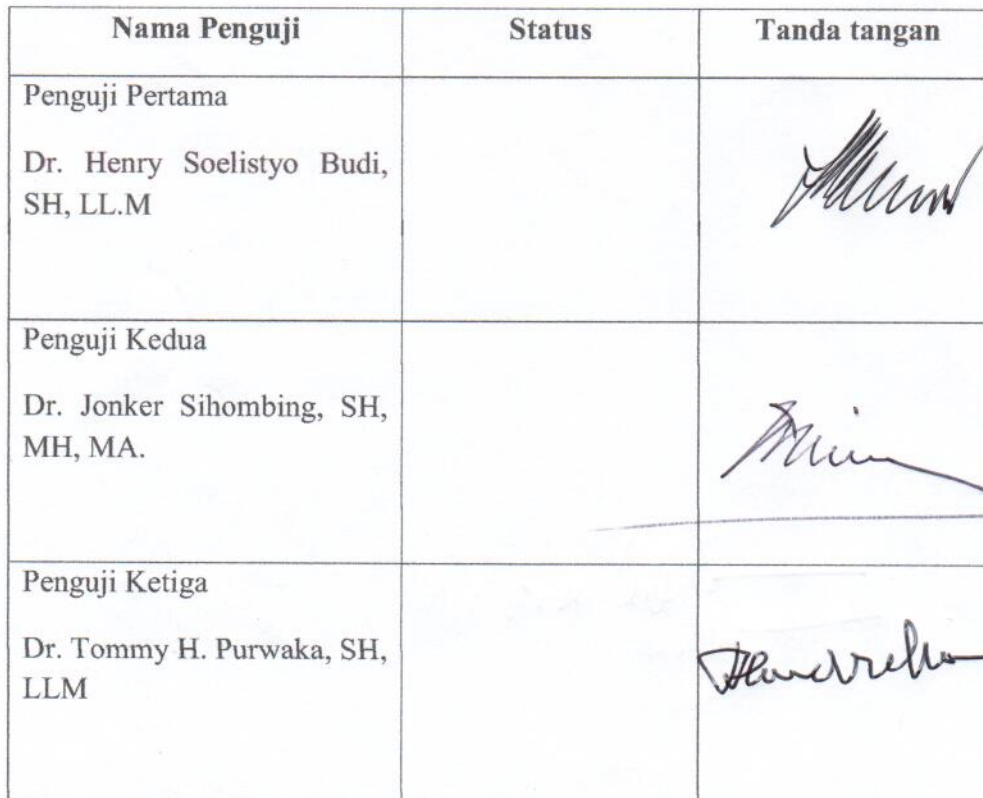 Nama Penguji Status Tanda tangan
Penguji Pertama
Dr. Henry Soelistyo Budi,
SH, LL.M
Penguji Kedua
Dr. Jonker Sihombing, SH,
MH, MA.
Penguji Ketiga
Dr. Tommy H. Purwaka, SH,
LLM